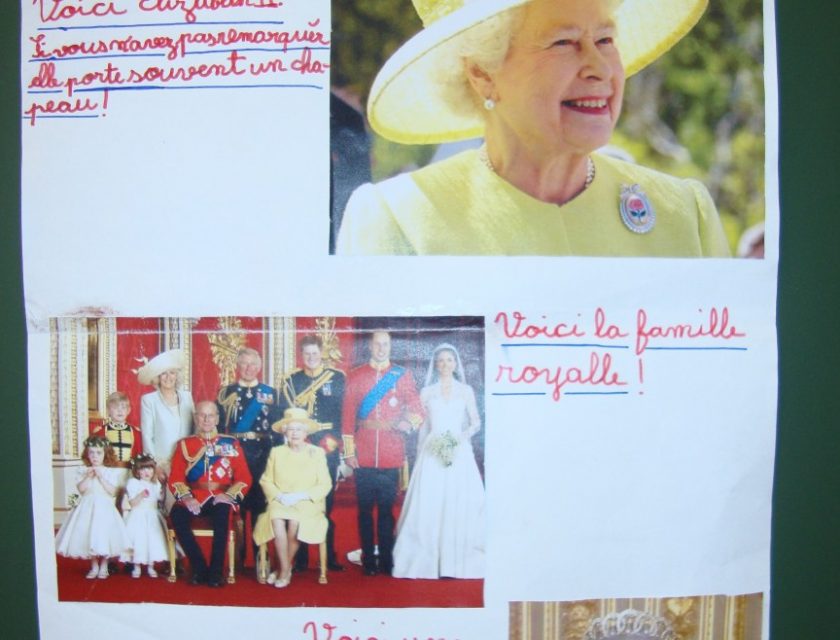 Voici Elizabeth II.
Si vous n'avez pas remarquér
elle porte souvent un cha-
peau!
Voici la famille
royalle!
Voici une